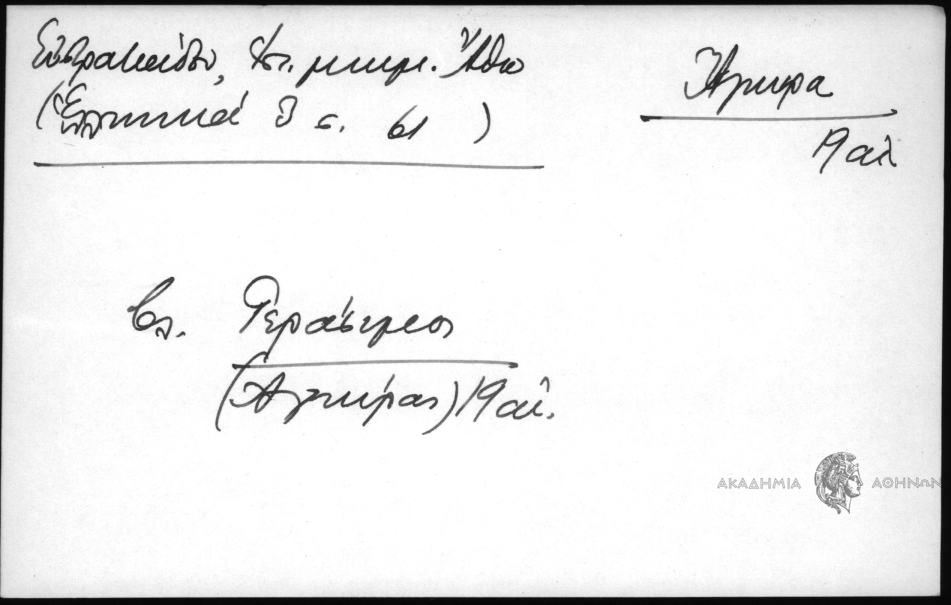 Εὐστρατιάδου, Ἱστ. μνημ. Ἄθω
(Ἑλληνικά 3 σ. 61)
Ἄγκυρα
19 αἰ.
βλ. Γεράσιμος
(Ἀγκύρας) 19 αἰ.
ΑΚΑΔΗΜΙΑ ΑΘΗΝΩΝ